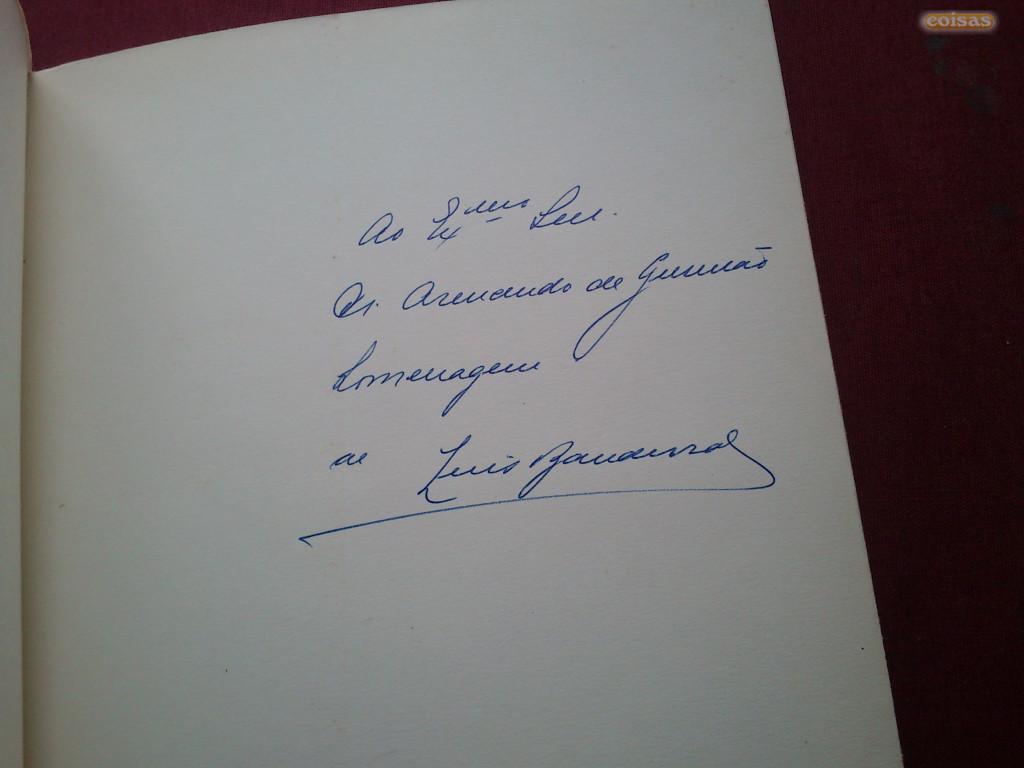 coisas
Ao Exmo Snr.
Dr. Armando de Gusmão
Homenagem
de Luis Bandeira